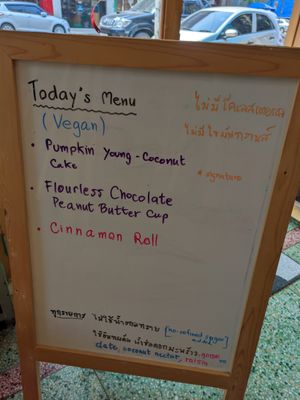 Today's Menu
(Vegan)
ไม่มีโคเลสเตอรอล
ไม่มีไขมันทรานส์
• Pumpkin Young-Coconut
Cake
* signature
• Flourless Chocolate
Peanut Butter Cup
• Cinnamon Roll
ทุกรายการ ไม่ใช้น้ำตาลทราย (no-refined sugar
added)
date, coconut nectar, raisin